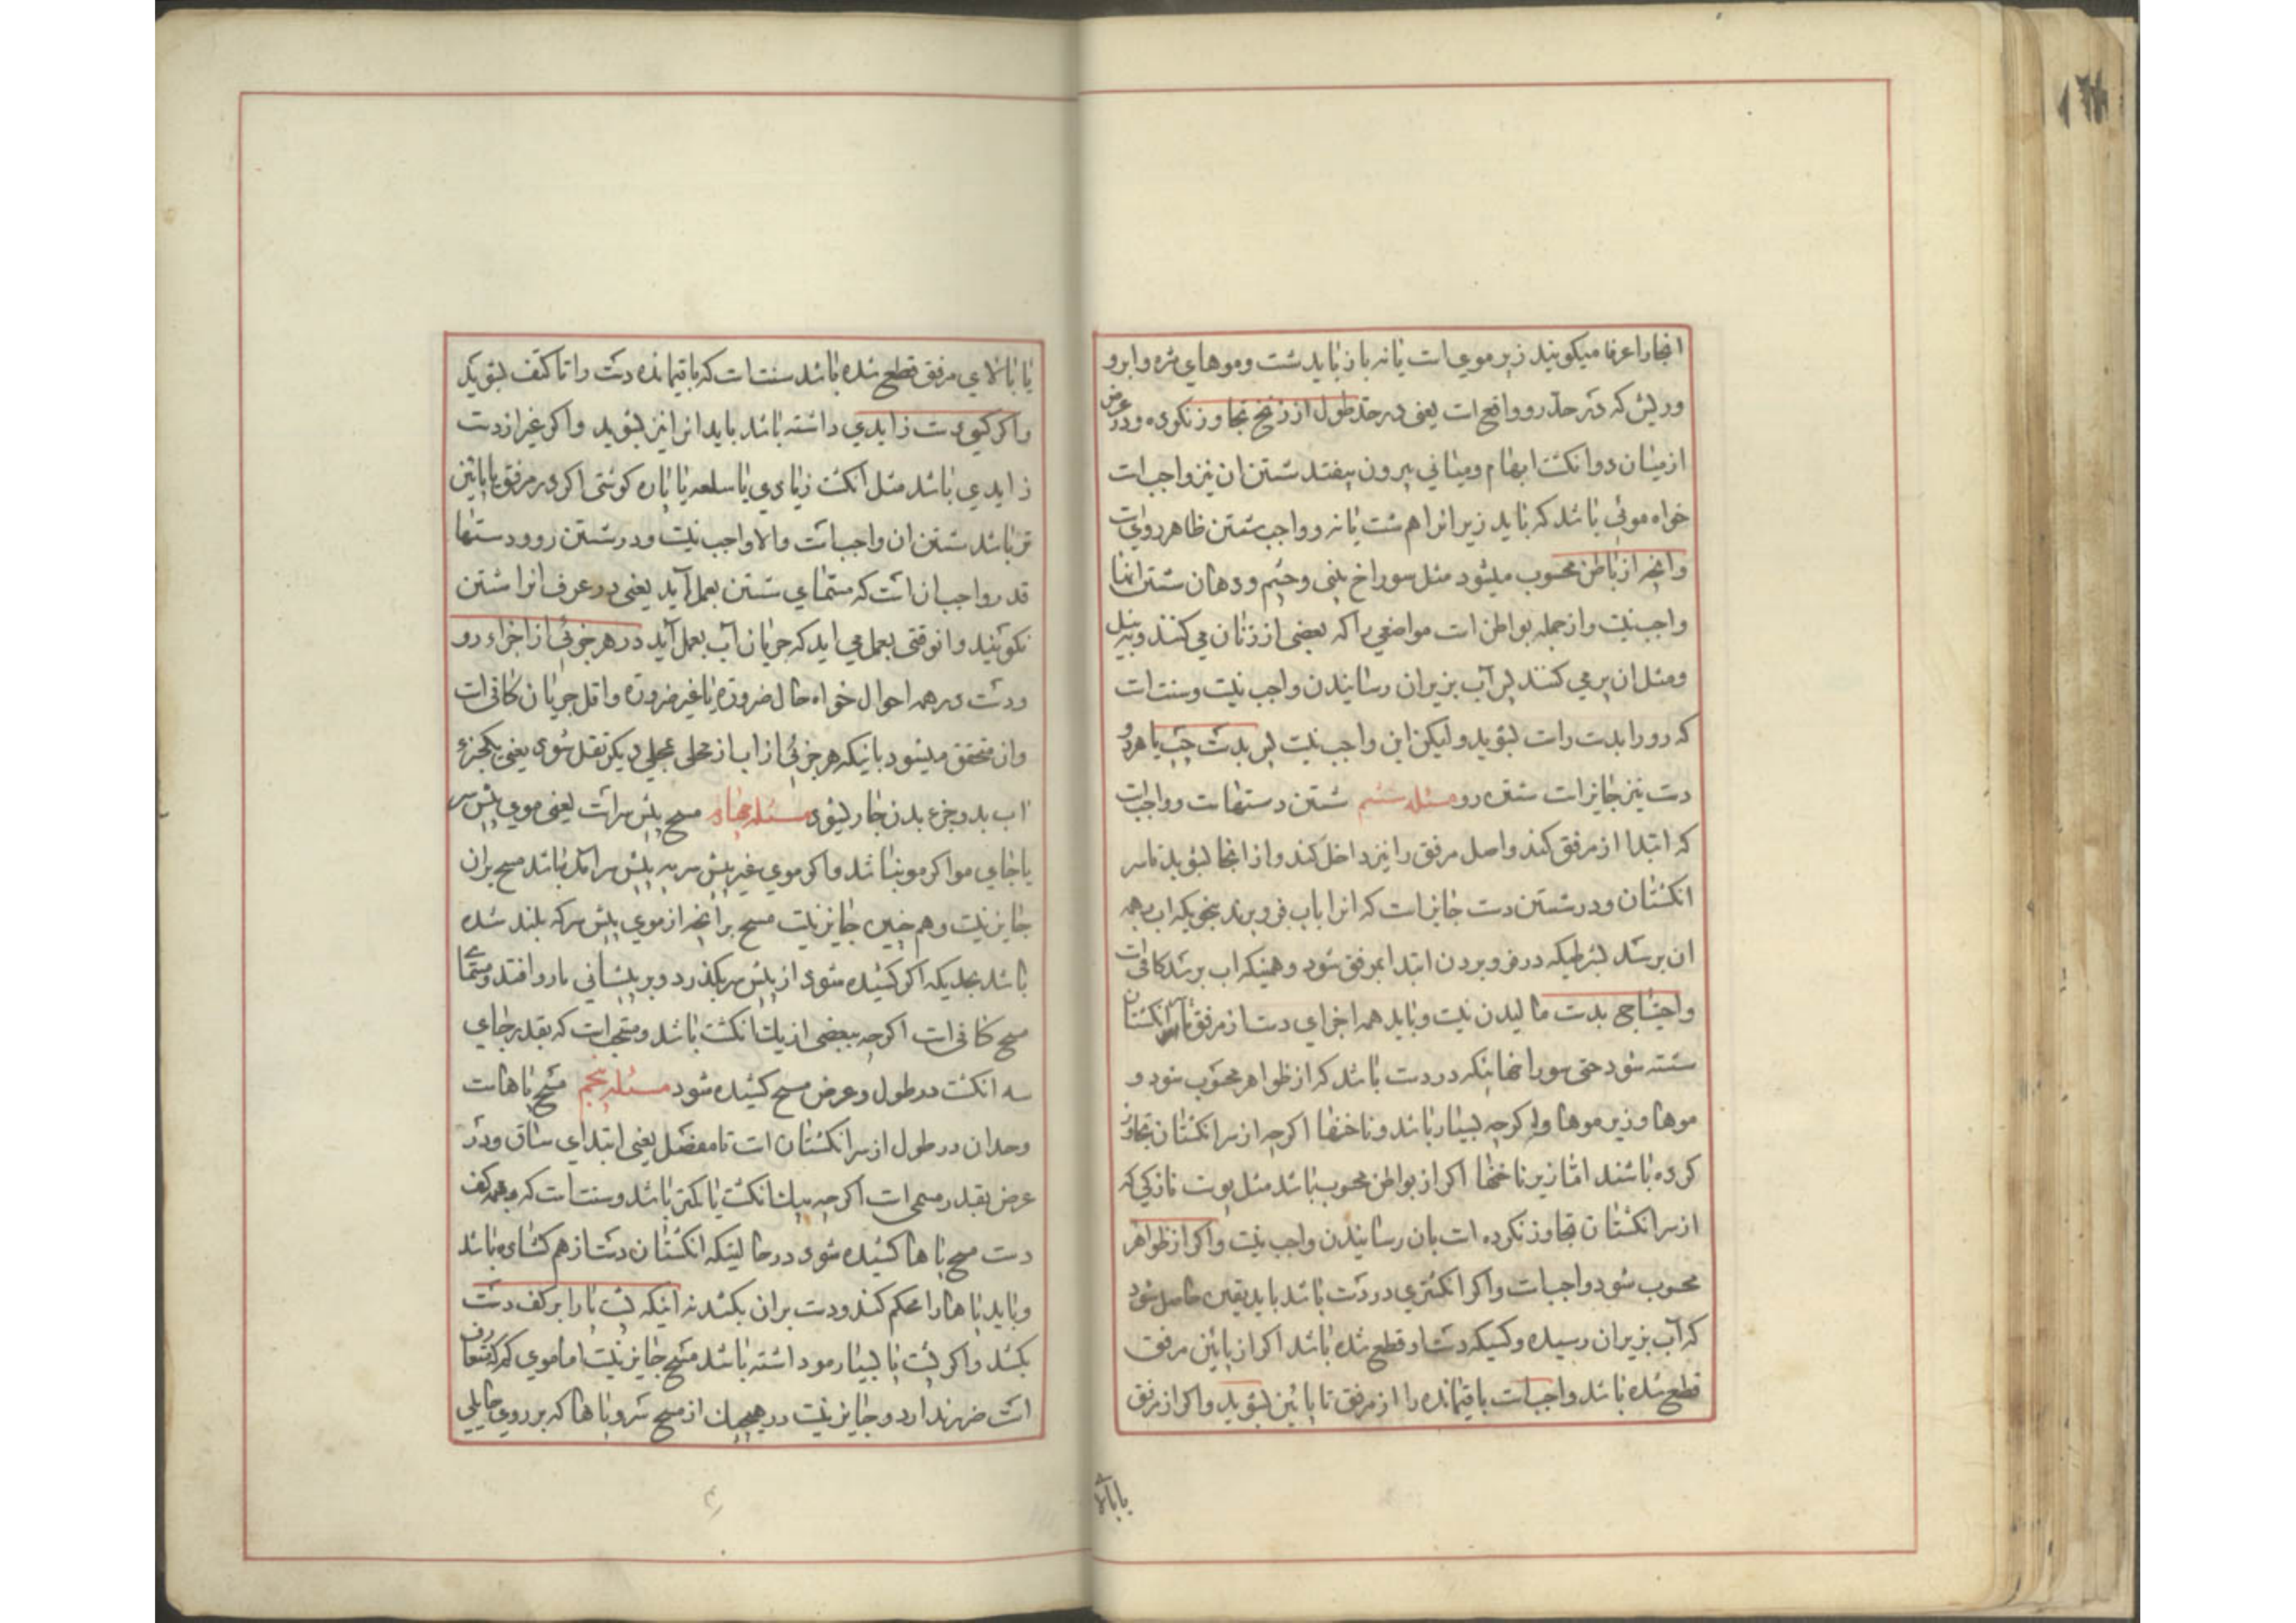 انجا را عرفا میکویند زیر موی است یا نه باز باید شست و موهای مژه و ابرو
و ریش که در حد رو واقع است یعنی در حد طول از زنخ تجاوز نکرده و در عرض
از میان دو انکشت ابهام و میانی بیرون نیفتد شستن ان نیز واجب است
خواه موئی باشد که باید زیر انرا هم شست یا نه و واجب شستن ظاهر رویست
و انچه از باطن محسوب میشود مثل سوراخ بینی و چشم و دهان شستن انها
واجب نیست و از جمله بواطن است مواضعی را که بعضی از زنان می کنند و به نیل
و مثل ان پر می کنند پس آب بزیر ان رسانیدن واجب نیست و سنت است
که رو را بدست راست بشوید و لیکن این واجب نیست پس بدست چپ یا هر دو
دست نیز جایز است شستن رو مسئله سیم شستن دستهاست و واجب است
که ابتدا از مرفق کند و اصل مرفق را نیز داخل کند و از انجا بشوید تا سر
انکشتان و در شستن دست جایز است که انرا باب فرو برند بنحوی که اب بهمه
ان برسد بشرطیکه در فرو بردن ابتدا بمرفق شود و همینکه اب برسد کافیست
و احتیاجی بدست مالیدن نیست و باید همه اجزای دست از مرفق تا سر انکشتان
شسته شود حتی سوراخها نیکه در دست باشد که از ظواهر محسوب شود و
موها و زیر موها و اکرچه بسیار باشد و ناخنها اکرچه از سر انکشتان تجاوز
کرده باشند اما زیر ناخنها اکر از بواطن محسوب باشد مثل پوست نازکی که
از سر انکشتان تجاوز نکرده است بان رسانیدن واجب نیست و اکر از ظواهر
محسوب شود واجبست و اکر انکشتری در دست باشد باید یقین حاصل شود
که آب بزیر ان رسیده و کسیکه دست او قطع شده باشد اکر از پائین مرفق
قطع شده باشد واجب است باقیمانده را از مرفق تا پائین بشوید و اکر از مرفق
یا بالا
یا بالای مرفق قطع شده باشد سنت است که باقیمانده دست را تا کتف بشوید
و اکر کسی دست زایدی داشته باشد باید انرا نیز بشوید و اکر غیر از دست
زایدی باشد مثل انکشت زیادی یا سلعه یا پاره کوشتی اکر در مرفق یا پائین
تر باشد شستن ان واجب است والا واجب نیست و در شستن رو و دستها
قدر واجب ان است که مسمای شستن بعمل آید یعنی در عرف انرا شستن
نکویند و انوقتی بعمل می اید که جریان آب بعمل آید در هر جزئی از اجزاء رو
و دست در همه احوال خواه حال ضرورة یا غیر ضرورة و اقل جریان کافی است
و ان متحقق میشود باینکه هر جزئی از اب از محلی بمحلی دیکر نقل شود یعنی یکجزء
اب بدو جزء بدن جار یشود مسئله چهارم مسح پیش سر است یعنی موی پیش سر
یا جای مو اکر مو نباشد و اکر موی غیر پیش سر به پیش سر امده باشد مسح بران
جایز نیست و هم چنین جایز نیست مسح بر انچه از موی پیش سر که بلند شده
باشد بحدیکه اکر کشیده شود از پیش سر بکذرد و بر پیشانی یا رو افتد و مسمای
مسح کافی است اکرچه ببعضی از یک انکشت باشد و مستحب است که بقدر جای
سه انکشت در طول و عرض مسح کشیده شود مسئله پنجم مسح پاهاست
و حد ان در طول از سر انکشتان است تا مفصل یعنی ابتدای ساق و در
عرض بقدر مسمی است اکرچه بیک انکشت یا کمتر باشد و سنت است که بهمه کف
دست مسح پاها کشیده شود در حالتیکه انکشتان دست از هم کشاده باشد
و باید پاها را محکم کند و دست بران بکشد نه اینکه پشت پا را بر کف دست
بکشد و اکر پشت پا بسیار مو داشته باشد مسح جایز نیست اما موی کم که متعارف
است ضرر ندارد و جایز نیست در هیچیک از مسح سر و پاها که بر روی حایلی